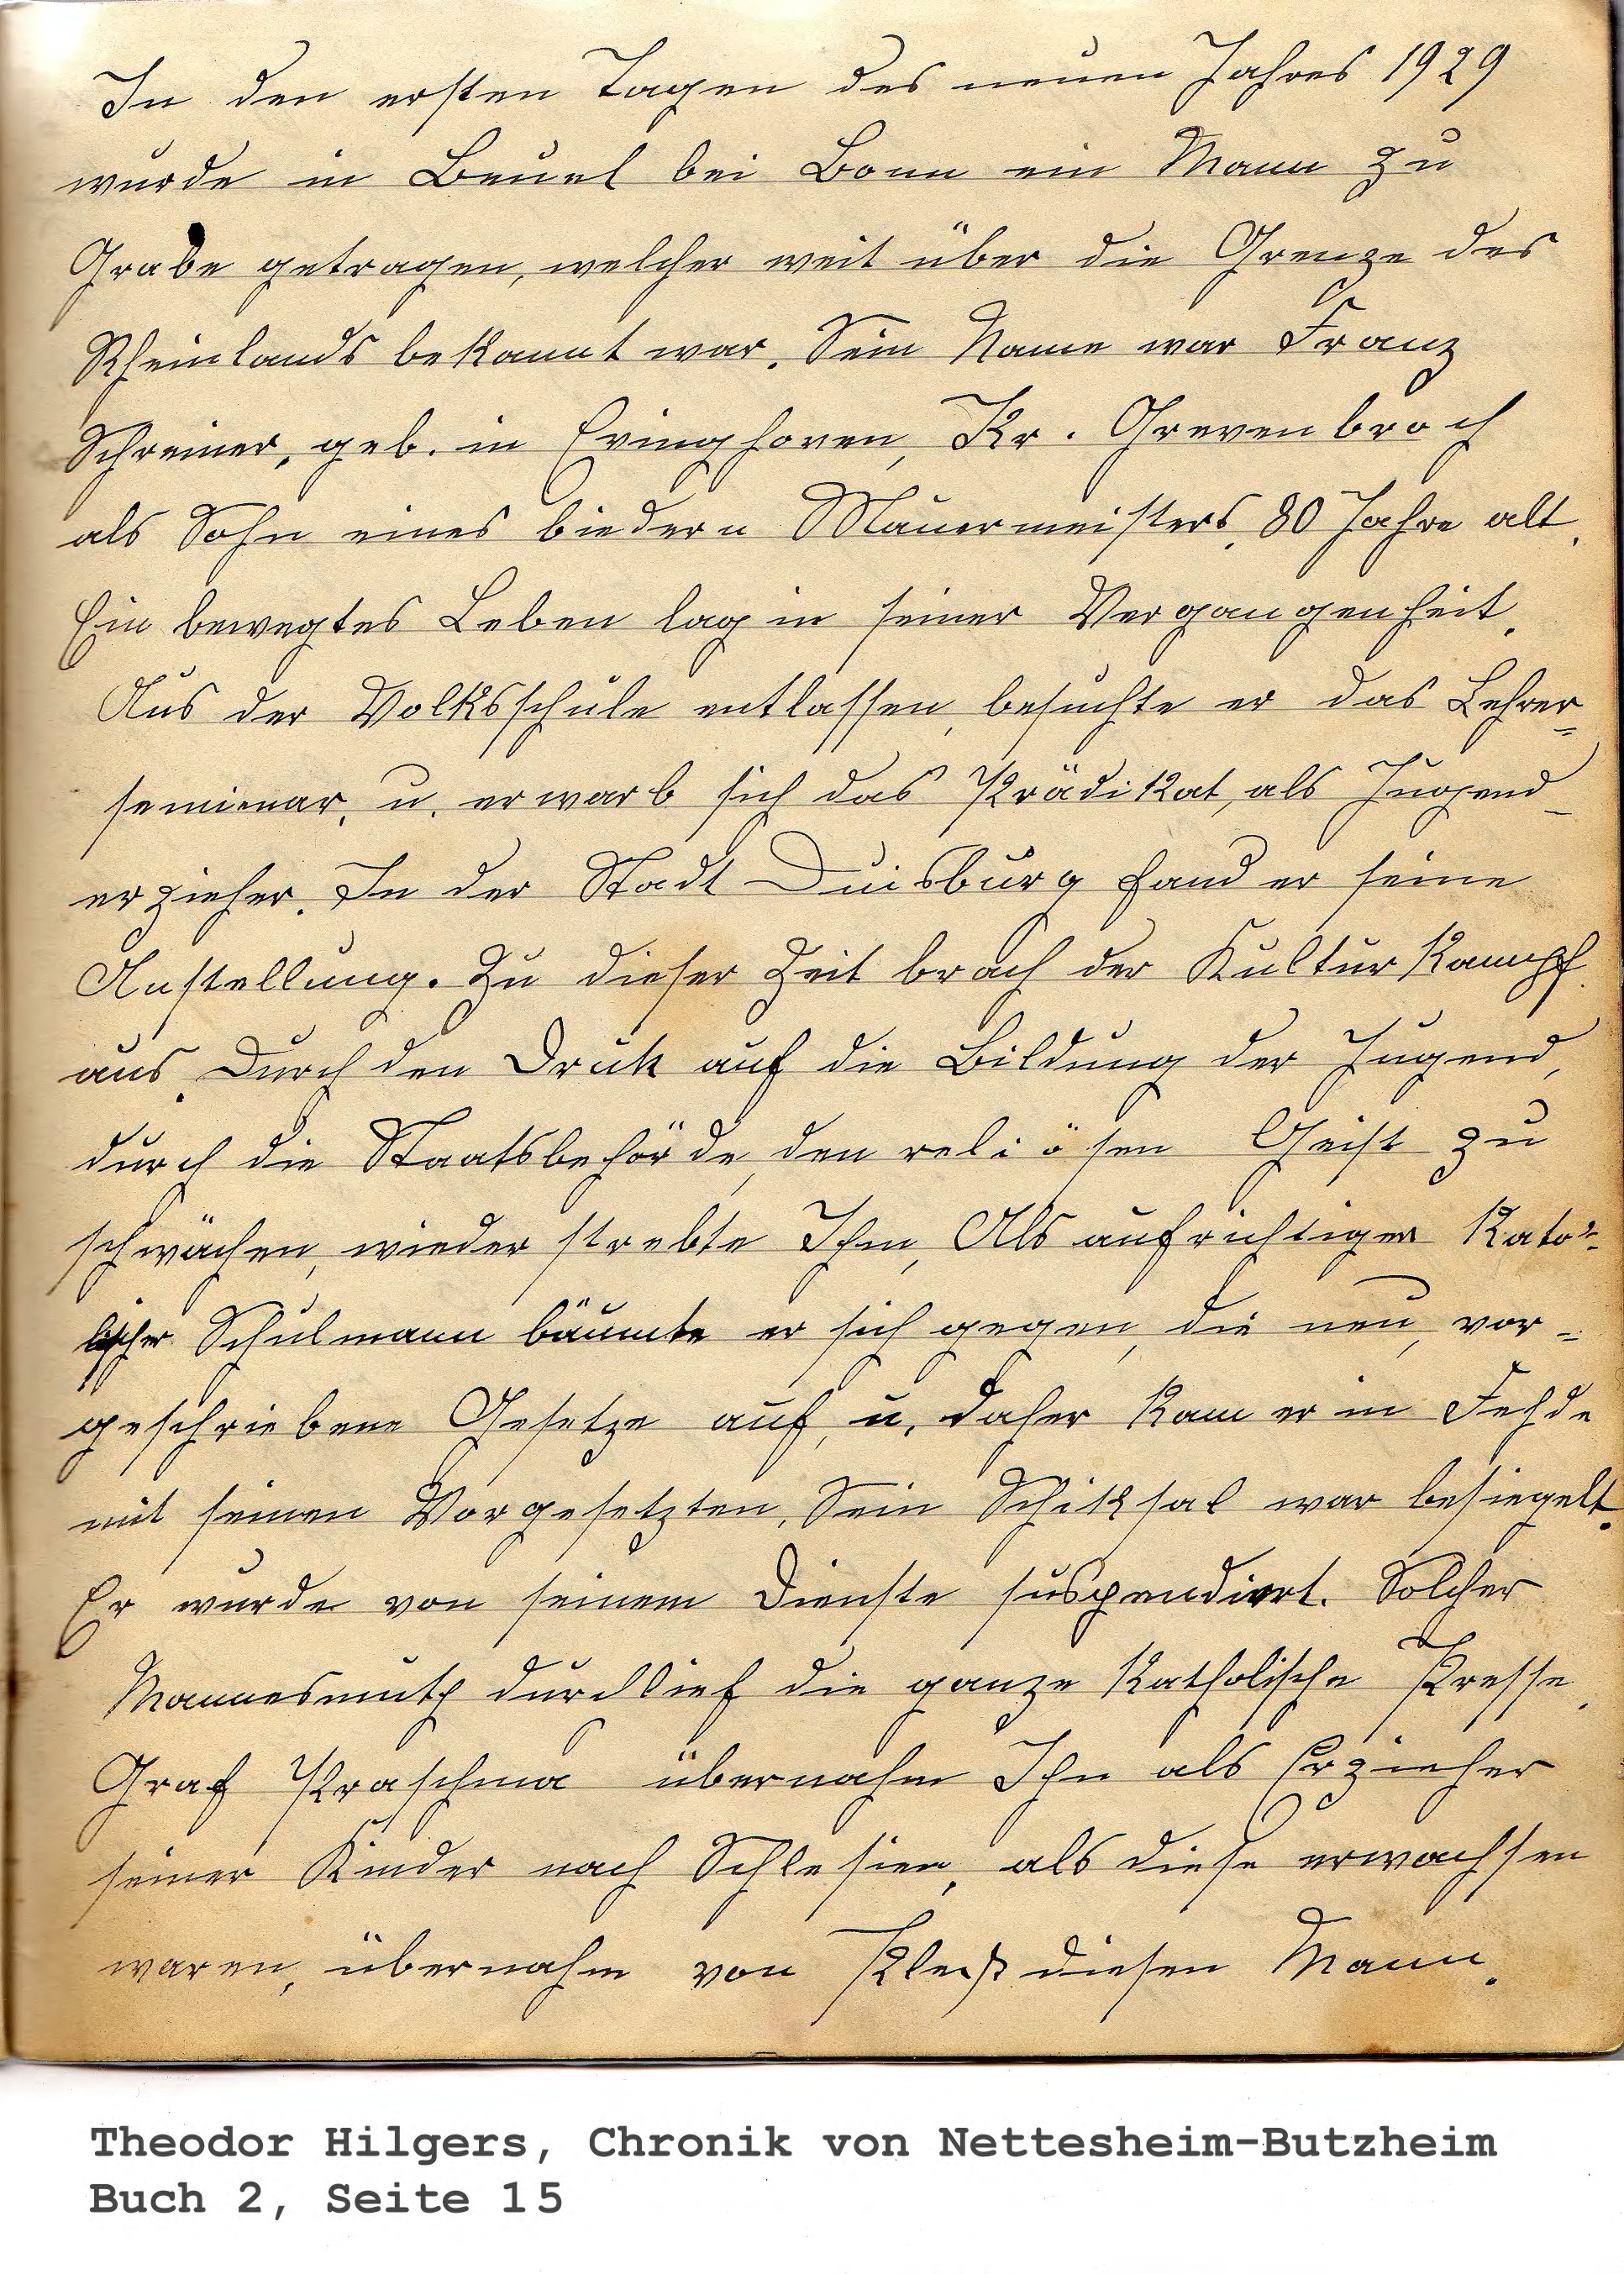 In den ersten Tagen des neuen Jahres 1929
wurde in Beuel bei Bonn ein Mann zu
Grabe getragen, welcher weit über die Grenze des
Rheinlands bekannt war. Sein Name war Franz
Schreiner, geb. in Evinghoven, Kr. Grevenbroch
als Sohn eines biedern Mauermeisters, 80 Jahre alt.
Ein bewegtes Leben lag in seiner Vergangenheit.
Aus der Volksschule entlassen, besuchte er das Lehrer=
seminar, u. erwarb sich das Prädikat, als Jugend-
erzieher. In der Stadt Duisburg fand er seine
Anstellung. Zu dieser Zeit brach der Kulturkampf
aus. Durch den Druk auf die Bildung der Jugend,
durch die Staatsbehörde, den reliösen Geist zu
schwächen, wieder strebte Ihm, Als aufrichtiger Kato=
lischer Schulmann bäumte er sich gegen, die neu, vor=
geschriebene Gesetze auf, u. daher kam er in Fehde
mit seinen Vorgesetzten, Sein Schiksal war besiegelt.
Er wurde von seinem Dienste suspendiert. Solcher
Mannesmuth durchlief die ganze Katholische Presse.
Graf Praschma übernahm Ihn als Erzieher
seiner Kinder nach Schlesien, als diese erwachsen
waren, übernahm von diesen Mann.
Theodor Hilgers, Chronik von Nettesheim-Butzheim
Buch 2, Seite 15